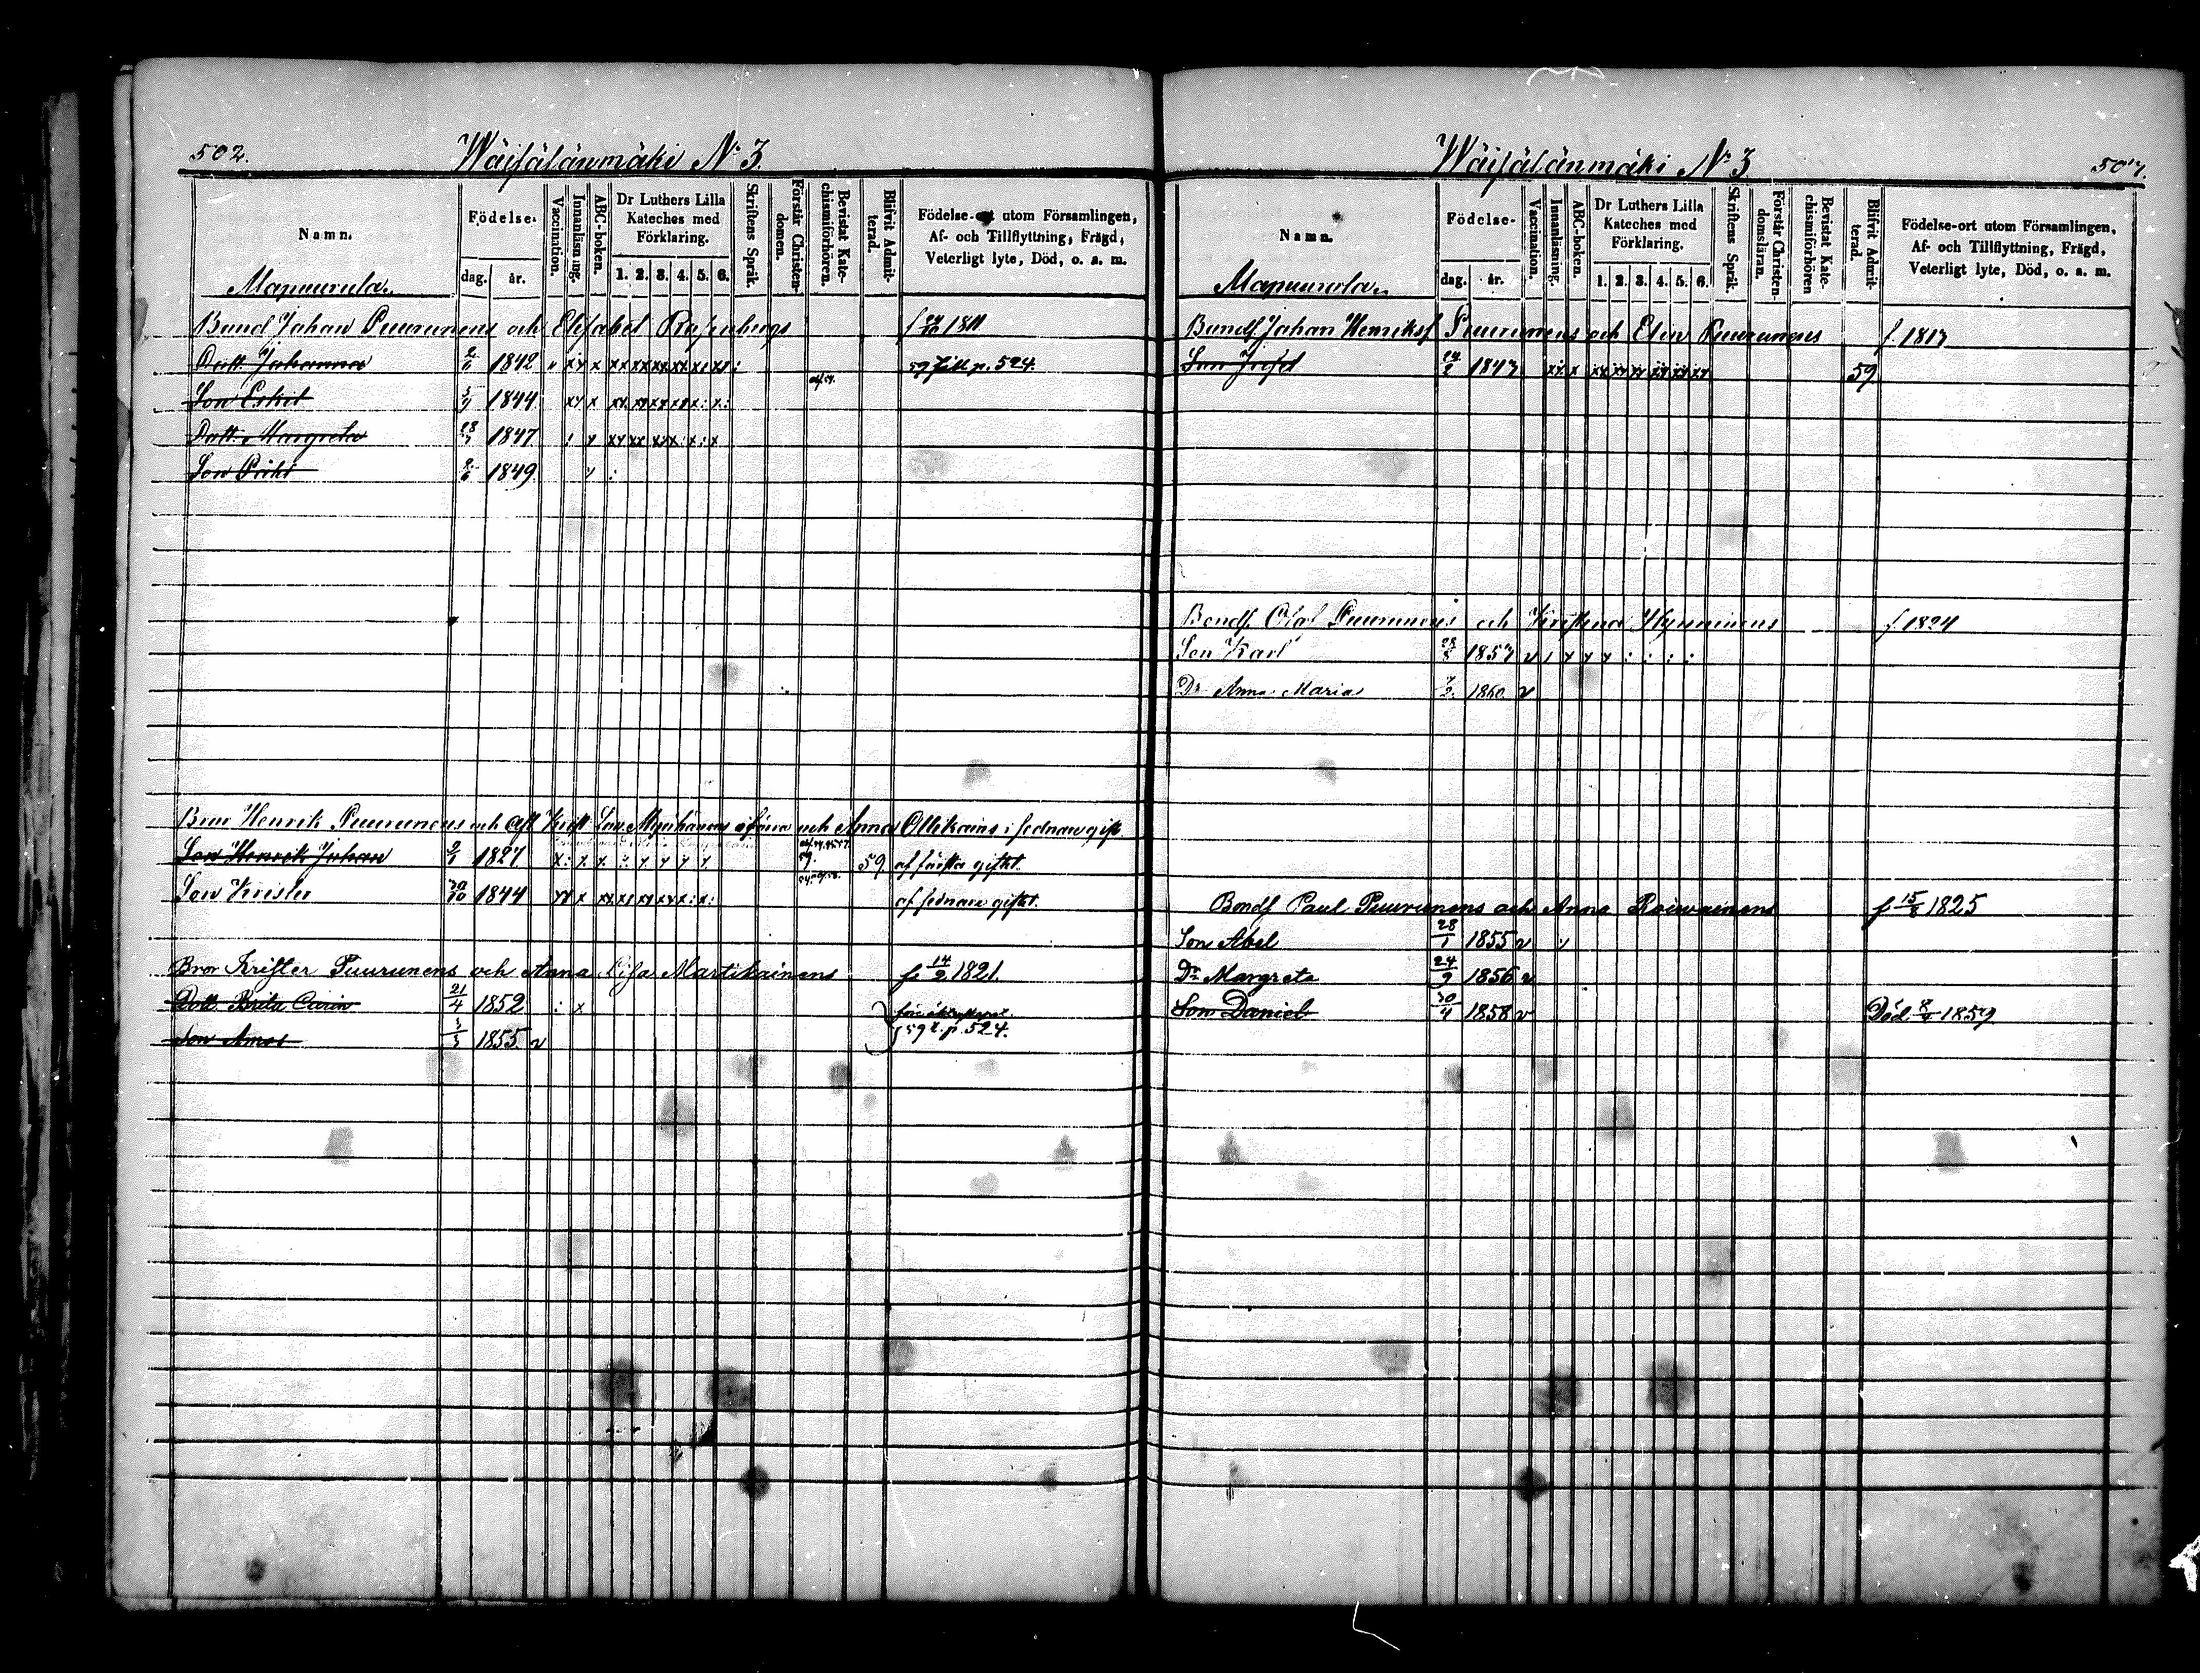 502.
Wäisälänmäki N:3.
Namn.
Födelse-
dag. år.
Vaccination.
Innanläsning.
ABC-boken.
Dr Luthers Lilla
Kateches med
Förklaring.
1. 2. 3. 4. 5. 6.
Skriftens Språk.
Förstår Christen-
domen.
Bevistat Kate-
chismiförhören.
Blifvit Admit-
terad.
Födelse-ort utom Församlingen,
Af- och Tillflyttning, Frägd,
Veterligt lyte, Död, o. a. m.
Mapuurula.
Bond Johan Puurunens och Elisabet f 1811
Dott. Johanna 2/6 1842 59 p. 524.
Son Eskel 1844
Dott. Margreta 1847
Son 1849
Bror Henrik Puurunens och Anna Ollikains i sednare gift
Son Henrik Johan 1827 59. 59. af första giftet.
Son Krister 30/10 1844 af sednare giftet.
Bror Krister Puurunens och Anna Lisa Martikainens f. 14/2 1821.
Dott. Brita Carin 21/4 1852
Son Amos 1855 v 59 p. 524.
Wäisälänmäki N:3
507.
Namn.
Födelse-
dag. år.
Vaccination.
Innanläsning.
ABC-boken.
Dr Luthers Lilla
Kateches med
Förklaring.
1. 2. 3. 4. 5. 6.
Skriftens Språk.
Förstår Christen-
domsläran.
Bevistat Kate-
chismiförhören
Blifvit Admit-
terad.
Födelse-ort utom Församlingen,
Af- och Tillflyttning, Frägd,
Veterligt lyte, Död, o. a. m.
Mapuurula.
Bonds Johan Henriks Puurunens och Elin Puurunens f. 1817
Son Josef 1847 59
Bonds. Olof Puurunens och Kristina Hynninens f. 1824
Son Karl 1857 v
Dr Anna Maria 1860 v
Bonds Paul Puurunens och Anna Roivainens f 15/8 1825
Son Abel 28/1 1855 v
Dr Margreta 24/9 1856 v
Son Daniel 30/4 1858 v Död 1859